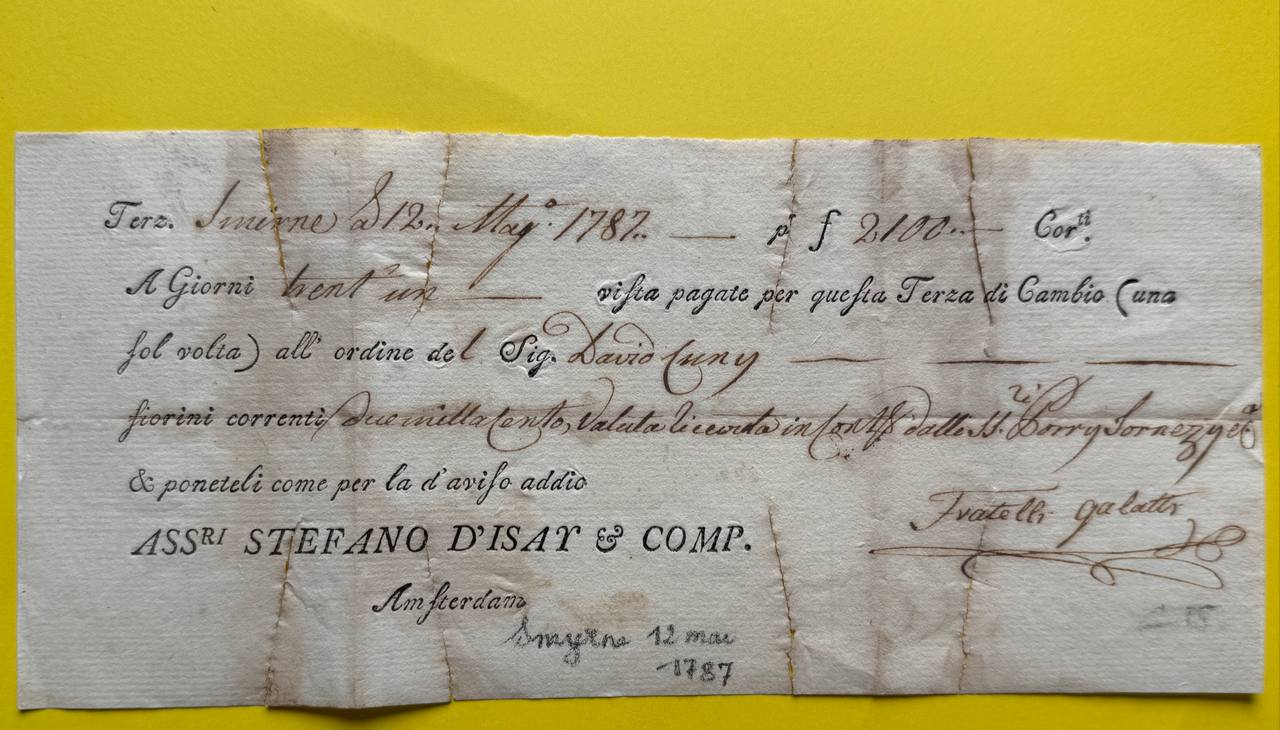 Terz. Smirne a d 12.. Magº. 1787.. — p f 2100..— Corti.
A Giorni trent'un — viſta pagate per queſta Terza di Cambio (una
ſol volta) all' ordine del Sig. David Cuny
fiorini correnti duemilla Cento, Valuta ricevuta in Conto dalli SS.ri
& poneteli come per la d'aviſo addio
Fratelli Galatti
ASSRI STEFANO D'ISAY & COMP.
Amſterdam
Smyrne 12 mai
1787